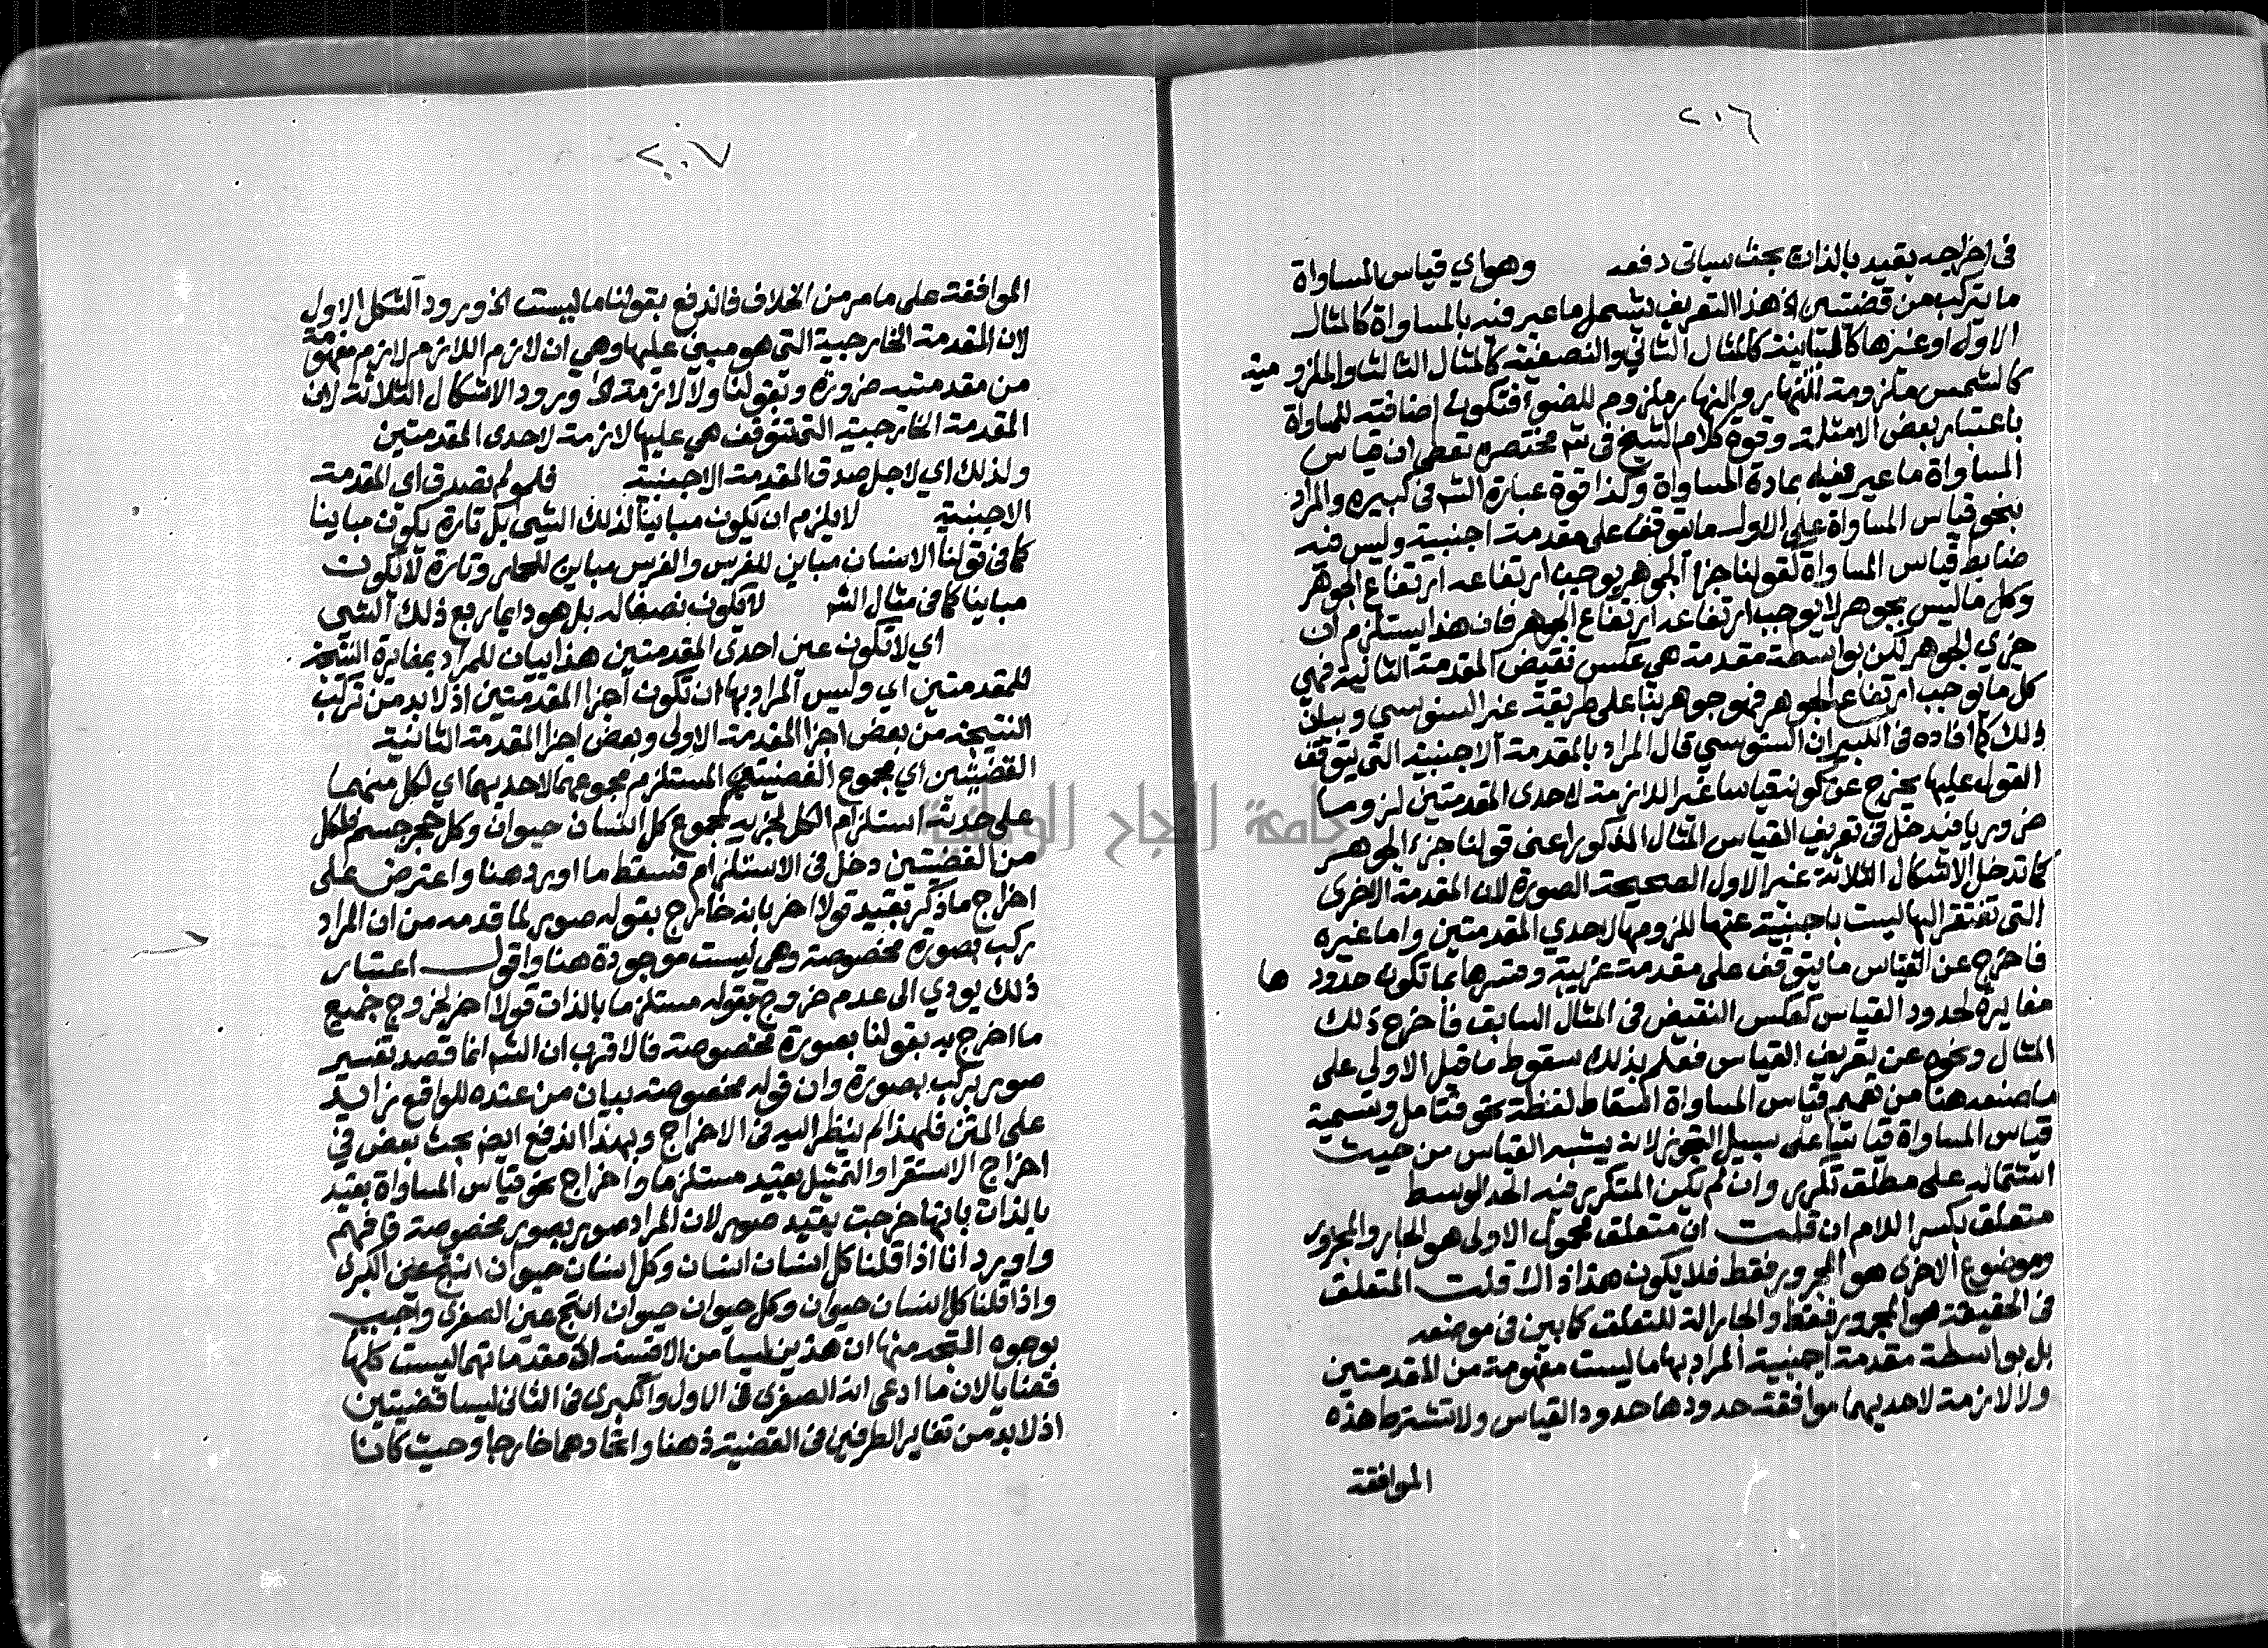 ٢٠٦
في اخراجه بقيد بالذات بحث سياتي دفعه وهو اي قياس المساواة
ما يتركب من قضيتين الخ هذا التعريف يشمل ما عبر فيه بالمساواة كالمثال
الاول او غيرها كالمباينة كالمثال الثاني والنصفية كالمثال الثالث والملزومية
كالشمس ملزومة للنهار والنهار ملزوم للضوء فتكون اضافته للمساواة
باعتبار بعض الامثلة وقوة كلام الشيخ في شم مختصره تعطي ان قياس
المساواة ما عبر فيه بمادة المساواة وكذا قوة عبارة الشم في كبيره والمراد
بنحو قياس المساواة على الاول ما توقف على مقدمة اجنبية وليس فيه
ضابط قياس المساواة كقولنا جزا الجوهر يوجب ارتفاعه ارتفاع الجوهر
وكل ما ليس بجوهر لا يوجب ارتفاعه ارتفاع الجوهر فان هذا يستلزم ان
جزي الجوهر لكن بواسطة مقدمة هي عكس نقيض المقدمة الثانية فهي
كل ما يوجب ارتفاع الجوهر فهو جوهر بنا على طريقة غير السنوسي وبيان
ذلك كما افاده في الكبير ان السنوسي قال المراد بالمقدمة الاجنبية التي يتوقف
القول عليها يخرج عن كونه قياسا غير اللازمة لاحدى المقدمتين لزوما
ضروريا فيدخل في تعريف القياس المثال المذكور اعني قولنا جزء الجوهر
كما تدخل الاشكال الثلاثة غير الاول الصحيحة الصورة لان المقدمة الاخرى
التي تفتقر اليها ليست باجنبية عنها للزومها لاحدي المقدمتين واما غيره
فاخرج عن القياس ما يتوقف على مقدمة غريبة وفسرها بما تكون حدودها
مغايرة لحدود القياس كعكس النقيض في المثال السابق فاخرج ذلك
المثال ونحوه عن تعريف القياس فعلم بذلك سقوط ما قيل الاولى على
ما صنعه هنا من قياس المساواة اسقاط لفظة نحو فتامل وتسمية
قياس المساواة قياسا على سبيل التجوز لانه يشبه القياس من حيث
اشتماله على مطلق تكرر وان لم يكن المتكرر فيه الحد الوسط
متعلق بكسر اللام ان قلت ان متعلق محمول الاولى هو الجار والمجرور
وموضوع الاخرى هو المجرور فقط فلا يكون هذا ذاك قلت المتعلق
في الحقيقة هو المجرور فقط والجار الة للتعلق كما بين في موضعه
بل بواسطة مقدمة اجنبية المراد بها ما ليست مفهومة من المقدمتين
ولا لازمة لاحديهما موافقة حدودها حدود القياس ولا تشترط هذه
الموافقة
٢٠٧
الموافقة على ما مر من الخلاف فاندفع بقولنا ما ليست الخ ورود الشكل الاول
لان المقدمة الخارجية التي هو مبني عليها وهي ان لازم اللازم لازم مفهومة
من مقدمتيه ضرورة وبقولنا ولا لازمة الخ ورود الاشكال الثلاثة لان
المقدمة الخارجية التي تتوقف هي عليها لازمة لاحدى المقدمتين
ولذلك اي لاجل صدق المقدمة الاجنبية فلو لم تصدق اي المقدمة
الاجنبية لا يلزم ان يكون مباينا لذلك الشي بل تارة يكون مباينا
كما في قولنا الانسان مباين للفرس والفرس مباين للحمار وتارة لا يكون
مباينا كما في مثال الشم لا يكون نصفا له بل هو دايما ربع ذلك الشي
اي لا تكون عين احدى المقدمتين هذا بيان للمراد بمغايرة النتيجة
للمقدمتين اي وليس المراد بها ان تكون اجزا المقدمتين اذ لا بد من تركب
النتيجة من بعض اجزا المقدمة الاولى وبعض اجزا المقدمة الثانية
القضيتين اي مجموع القضيتين المستلزم مجموعهما لاحديهما اي لكل منهما
على حدته استلزام الكل لجزيه كمجموع كل انسان حيوان وكل حجر جسم فلكل
من القضيتين دخل في الاستلزام فسقط ما اورد هنا واعترض على
اخراج ما ذكر بقيد قولا اخر بانه خارج بقوله صور لما قدمه من ان المراد
ركب بصورة مخصوصة وهي ليست موجودة هنا واقول اعتبار
ذلك يودي الى عدم خروج بقوله مستلزما بالذات قولا اخر لخروج جميع
ما اخرج به بقولنا بصورة مخصوصة فالاقرب ان الشم انما قصد تفسير
صور بركب بصورة وان قوله مخصوصة بيان من عنده للواقع زايد
على المتن فلهذا لم ينظر اليه في الاخراج وبهذا اندفع ايضا بحث بعض في
اخراج الاستقرا والتمثيل بقيد مستلزما واخراج نحو قياس المساواة بقيد
بالذات بانها خرجت بقيد صور لان المراد صور بصور مخصوصة فافهم
واورد انا اذا قلنا كل انسان انسان وكل انسان حيوان انتج عين الكبرى
واذا قلنا كل انسان حيوان وكل حيوان حيوان انتج عين الصغرى واجيب
بوجوه المتجه منها ان هذين ليسا من الاقيسة لان مقدماتهما ليست كلها
قضايا لان ما ادعى انه الصغرى في الاول والكبرى في الثاني ليسا قضيتين
اذ لا بد من تغاير الطرفين في القضية ذهنا واتحادهما خارجا وحيث كانا
جامعة النجاح الوطنية